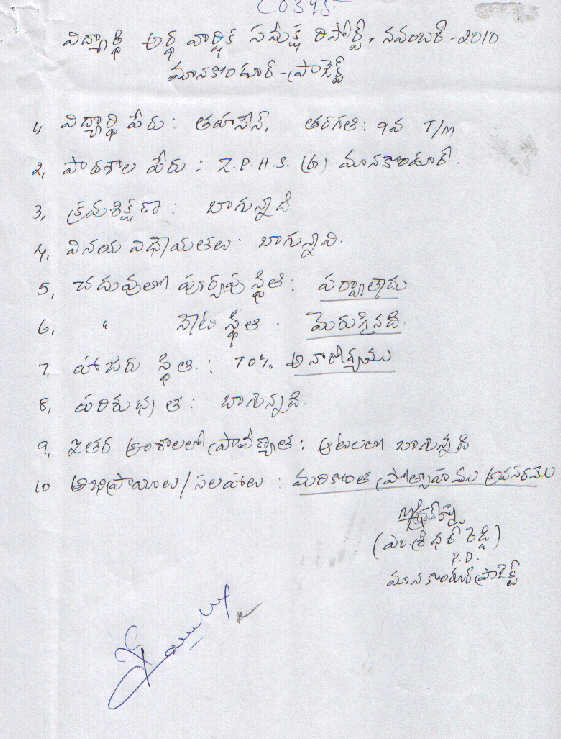 C0395
విద్యార్థి అర్థ వార్షిక సమీక్ష రిపోర్ట్, నవంబర్-2010
మానకొండూర్-ప్రాజెక్ట్
1, విద్యార్థి పేరు: తహసీన్, తరగతి: 9వ T/m
2, పాఠశాల పేరు: Z.P.H.S. మానకొండూర్.
3, క్రమశిక్షణ: బాగున్నది
4, వినయ విధేయతలు: బాగున్నవి.
5, చదువులో పూర్వపు స్థితి: పర్వాలేదు
6, " నేటి స్థితి. మెరుగైనది.
7, హాజరు స్థితి.: 70% అనారోగ్యము
8, పరిశుభ్రత: బాగున్నది.
9, ఇతర అంశాలలో ప్రావీణ్యత: ఆటలలో బాగున్నది
10 అభిప్రాయాలు/సలహాలు: మరికొంత ప్రోత్సాహము అవసరము
శ్రీధర్ రెడ్డి)
P.D.
మానకొండూర్ ప్రాజెక్ట్